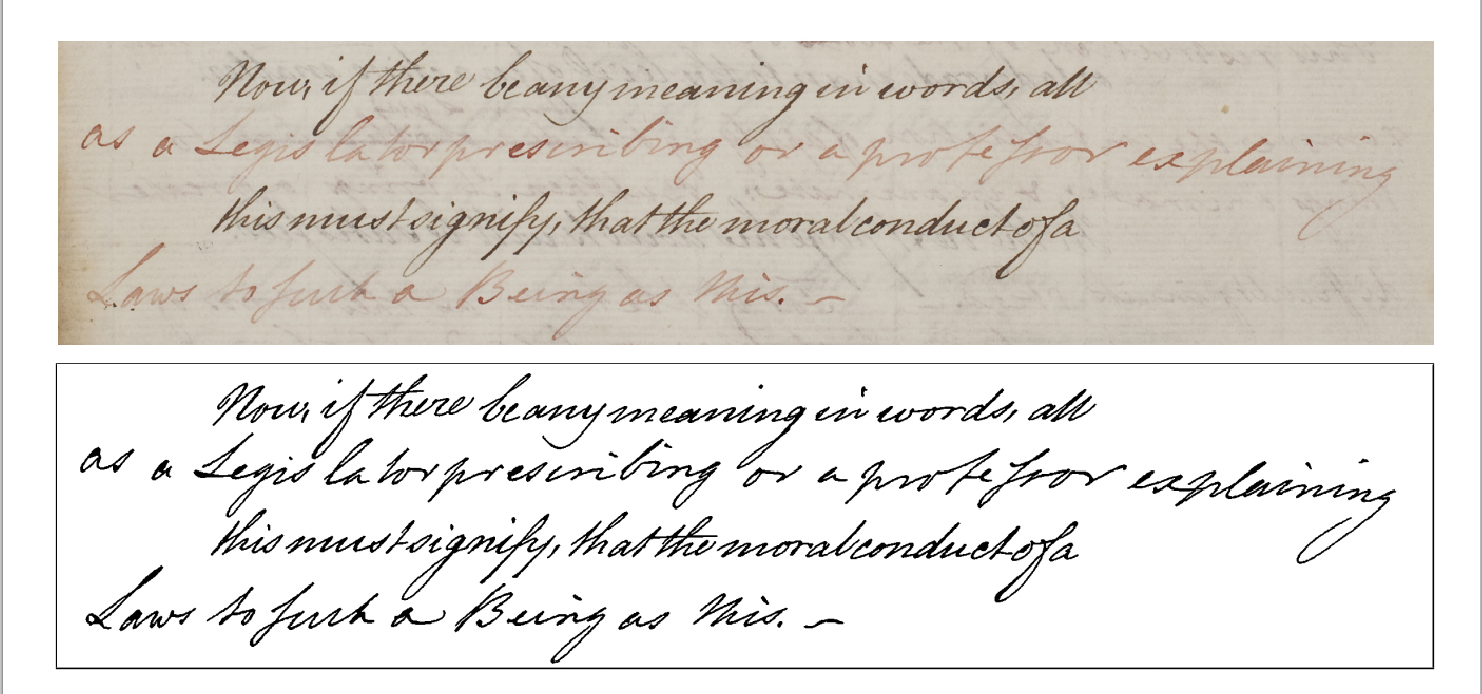 Now, if there be any meaning in words, all
as a Legislator prescribing or a professor explaining
this must signify, that the moral conduct of a
Laws to such a Being as this. –
Now, if there be any meaning in words, all
as a Legislator prescribing or a professor explaining
this must signify, that the moral conduct of a
Laws to such a Being as this. –